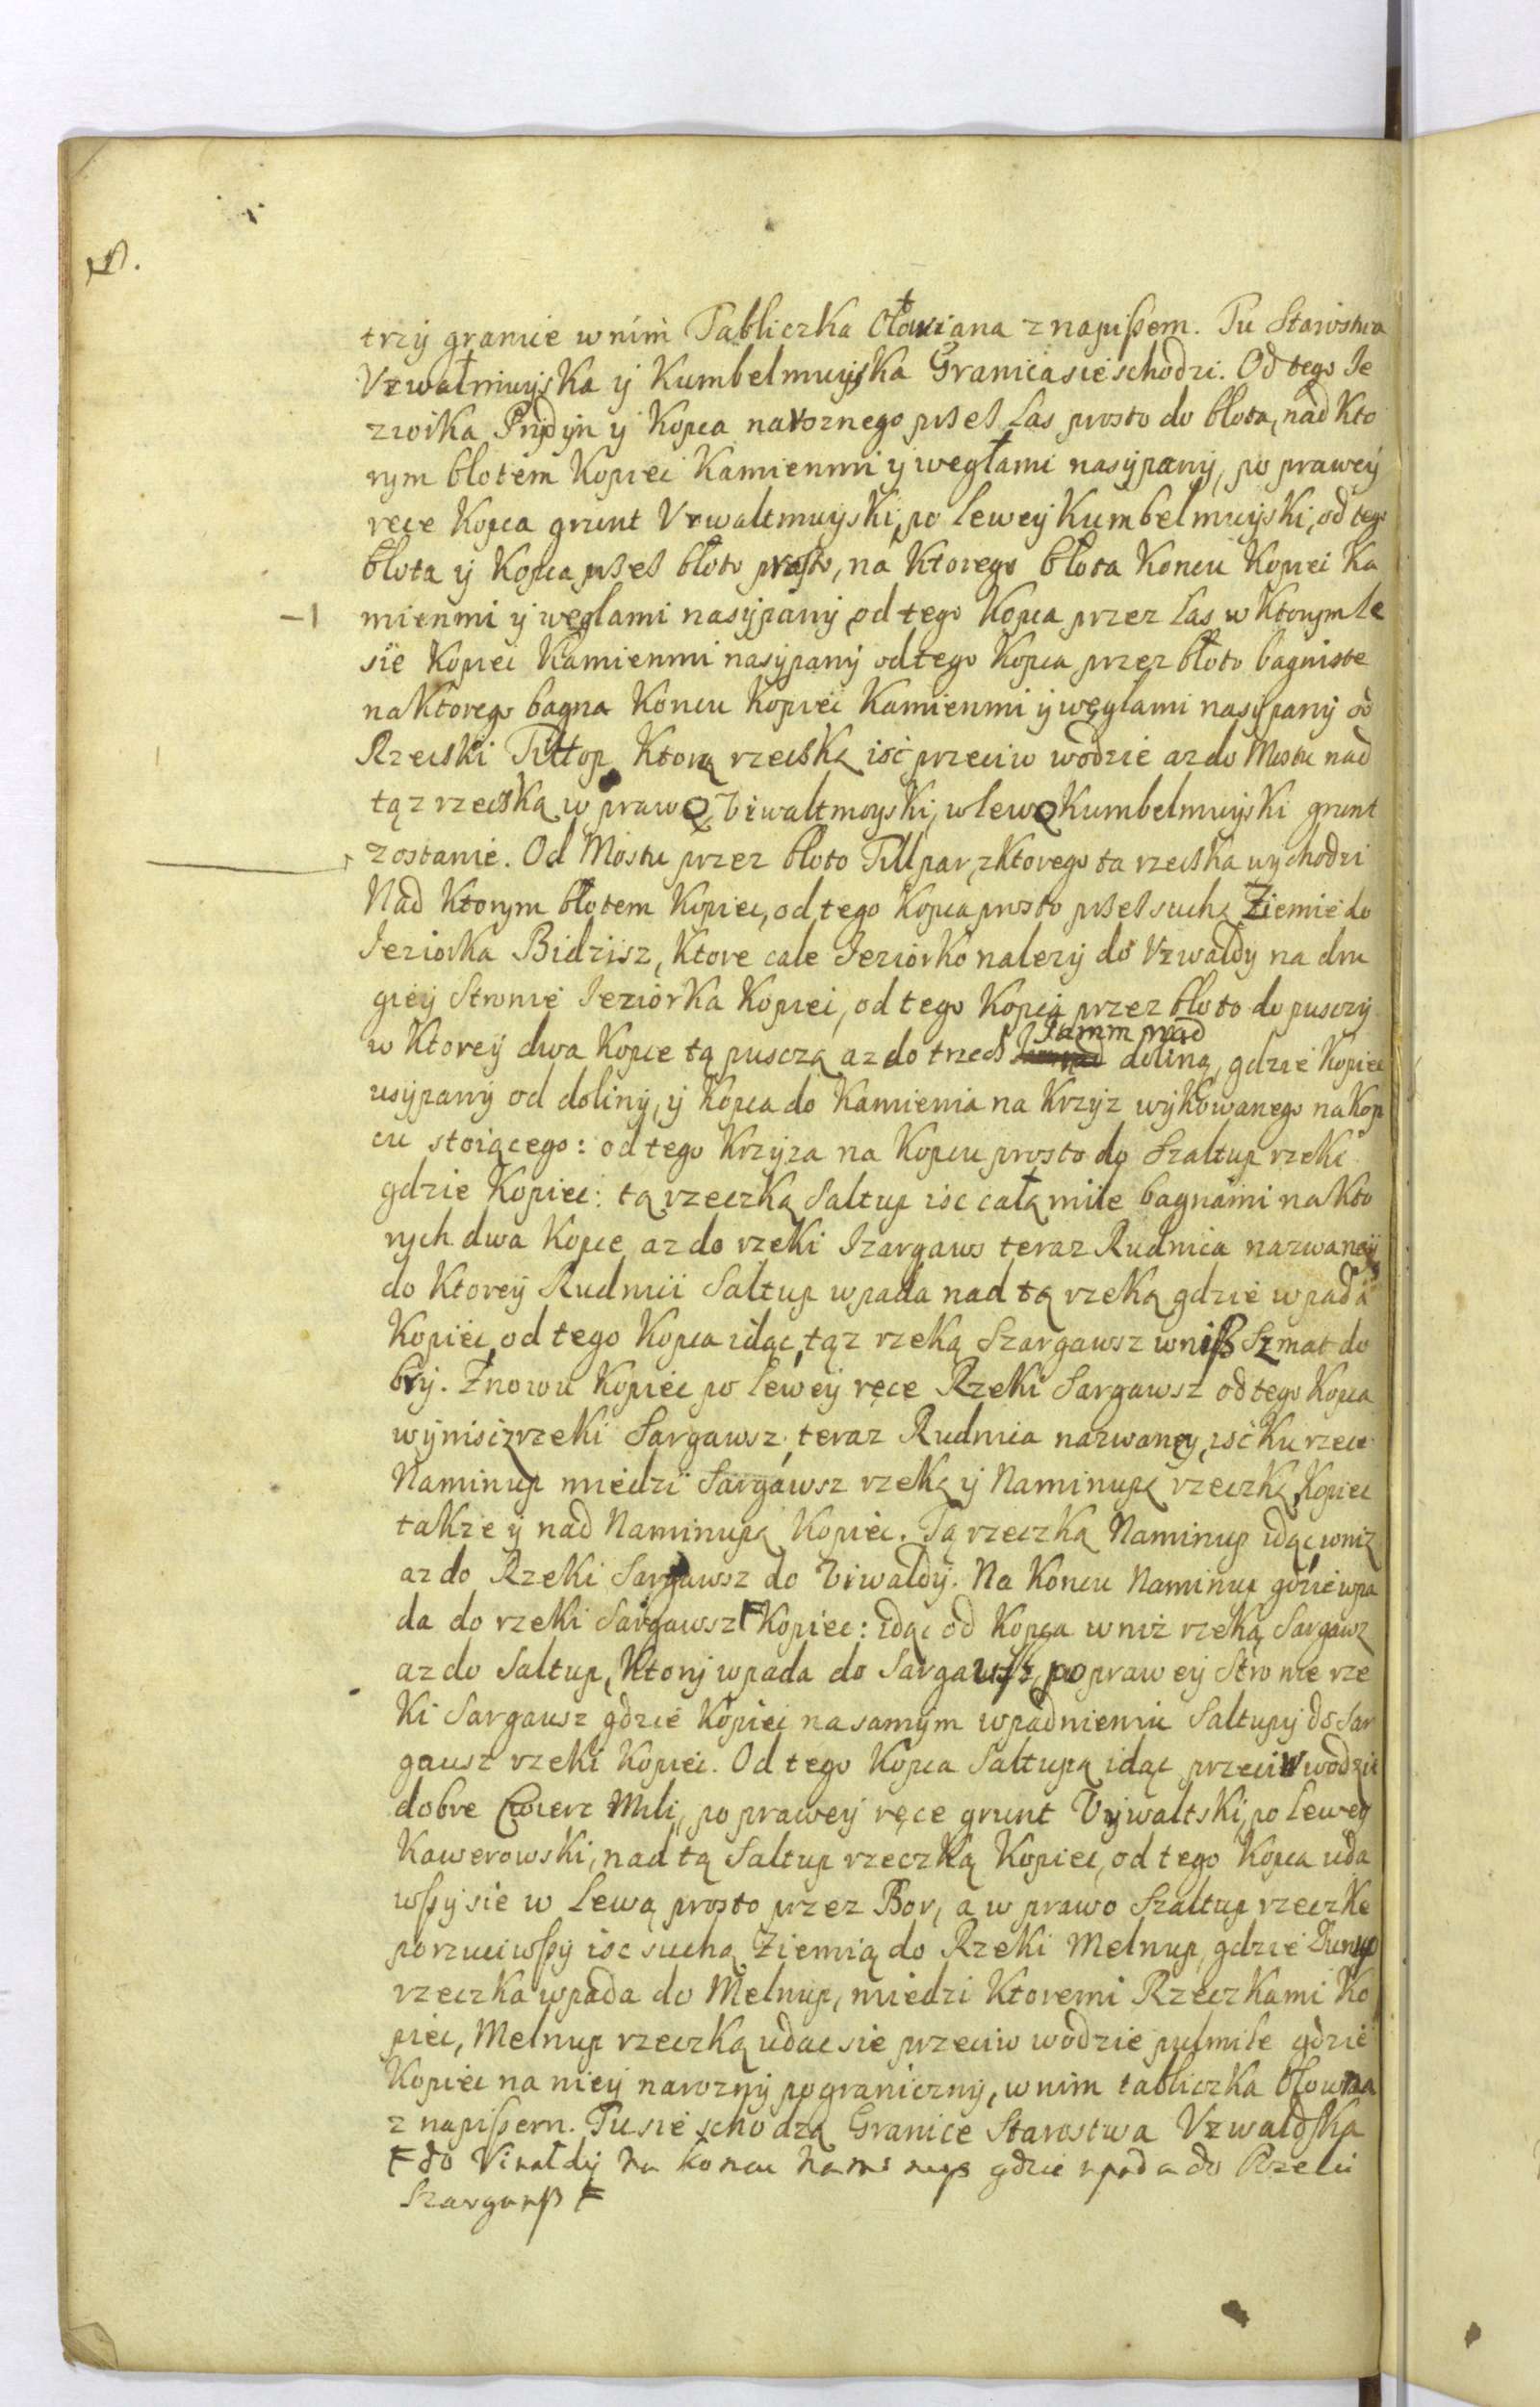 trzy granice w nim Tabliczka Ołowiana z napißem. Tu Starostwa
Vzwałmuyska y Kumbelmuyska Granica sie schodzi. Od tego Ie
ziorka Prydyn y Kopca naroznego przes Las prosto do błota, nad Kto
rym błotem Kopiec Kamienmi y wegłami nasypany, po prawey
ręce Kopca grunt Vzwaltmuyski, po lewey Kumbelmuyski, od tego
błota y Kopca przes błoto prosto, na Ktorego błota Koncu Kopiec Ka
mienmi y węglami nasypany od tego Kopca przez Las w Ktorym le
sie Kopiec Kamienmi nasypany od tego Kopca przez błoto bagniste
na Ktorego bagna Koncu Kopiec Kamienmi y węglami nasypany od
Rzecski Tiltop Ktorą rzecską isc przeciw wodzie az do Mostu nad
tąz rzecską w prawo Vzwaltmoyski, w lewo Kumbelmuyski grunt
zostanie. Od Mostu przez błoto Tillpar, z Ktorego ta rzecska wychodzi
Nad Ktorym błotem Kopiec, od tego Kopca prosto przes suchą Ziemie do
Ieziorka Bidzisz, Ktore cale Ieziorko nalezy do Vzwaldy na dru
giey Stronie Ieziorka Kopiec, od tego Kopca przez błoto do pusczy
w Ktorey dwa Kopce tą pusczą az do trzech Iamm nad doliną, gdzie Kopiec
usypany od doliny, y Kopca do Kamienia na Krzyz wykowanego na Kop
cu stoiącego: od tego Krzyza na Kopcu prosto do Szaltup rzeki
gdzie Kopiec: tą rzeczką Saltup isc całą mile bagnami na Kto
rych dwa Kopce az do rzeki Szargaws teraz Rudnica nazwaney
do Ktorey Rudnii Saltup wpada nad tą rzeką gdzie wpada
Kopiec, od tego Kopca idąc, tąz rzeką Szargawsz wniß Szmat do
bry. Znowu Kopiec po lewey ręce Rzeki Sargawsz od tego Kopca
wynisc z rzeki Sargawsz teraz Rudnia nazwaney, isc ku rzece
Naminup miedzi Sargawsz rzeką y Naminupą rzeczką Kopiec
takze y nad Naminupą Kopiec. Tą rzeczką Naminup idąc wniz
az do Rzeki Sargawsz do Vzwaldy. Na Koncu Naminup gdzie wpa
da do rzeki Sargawsz F Kopiec: idąc od Kopca w niz rzeką Sargawz
az do Saltup, Ktory wpada do Sargawsz, po prawey Stronie rze
ki Sargausz gdzie Kopiec na samym wpadnieniu Saltupy do Sar
gausz rzeki Kopiec. Od tego Kopca Saltupą idąc przeciw wodzie
dobre Cwierc Mili, po prawey ręce grunt Vywaltski, po lewey
Kawerowski, nad tą Saltup rzeczką Kopiec, od tego Kopca uda
wßy sie w Lewą prosto przez Bor, a w prawo Szaltup rzeczke
porzuciwßy isc suchą Ziemią do Rzeki Melnup, gdzie
rzeczka wpada do Melnup, miedzi Ktoremi Rzeczkami Ko
piec, Melnup rzeczką udac sie przeciw wodzie pulmile gdzie
Kopiec na niey narozny pograniczny, w nim tabliczka ołowna
z napißem. Tu sie schodzą Granice Starostwa Vzwaldska
F do Viwałdy na koncu naminup gdzie wpada do Rzeki
Szargawß F